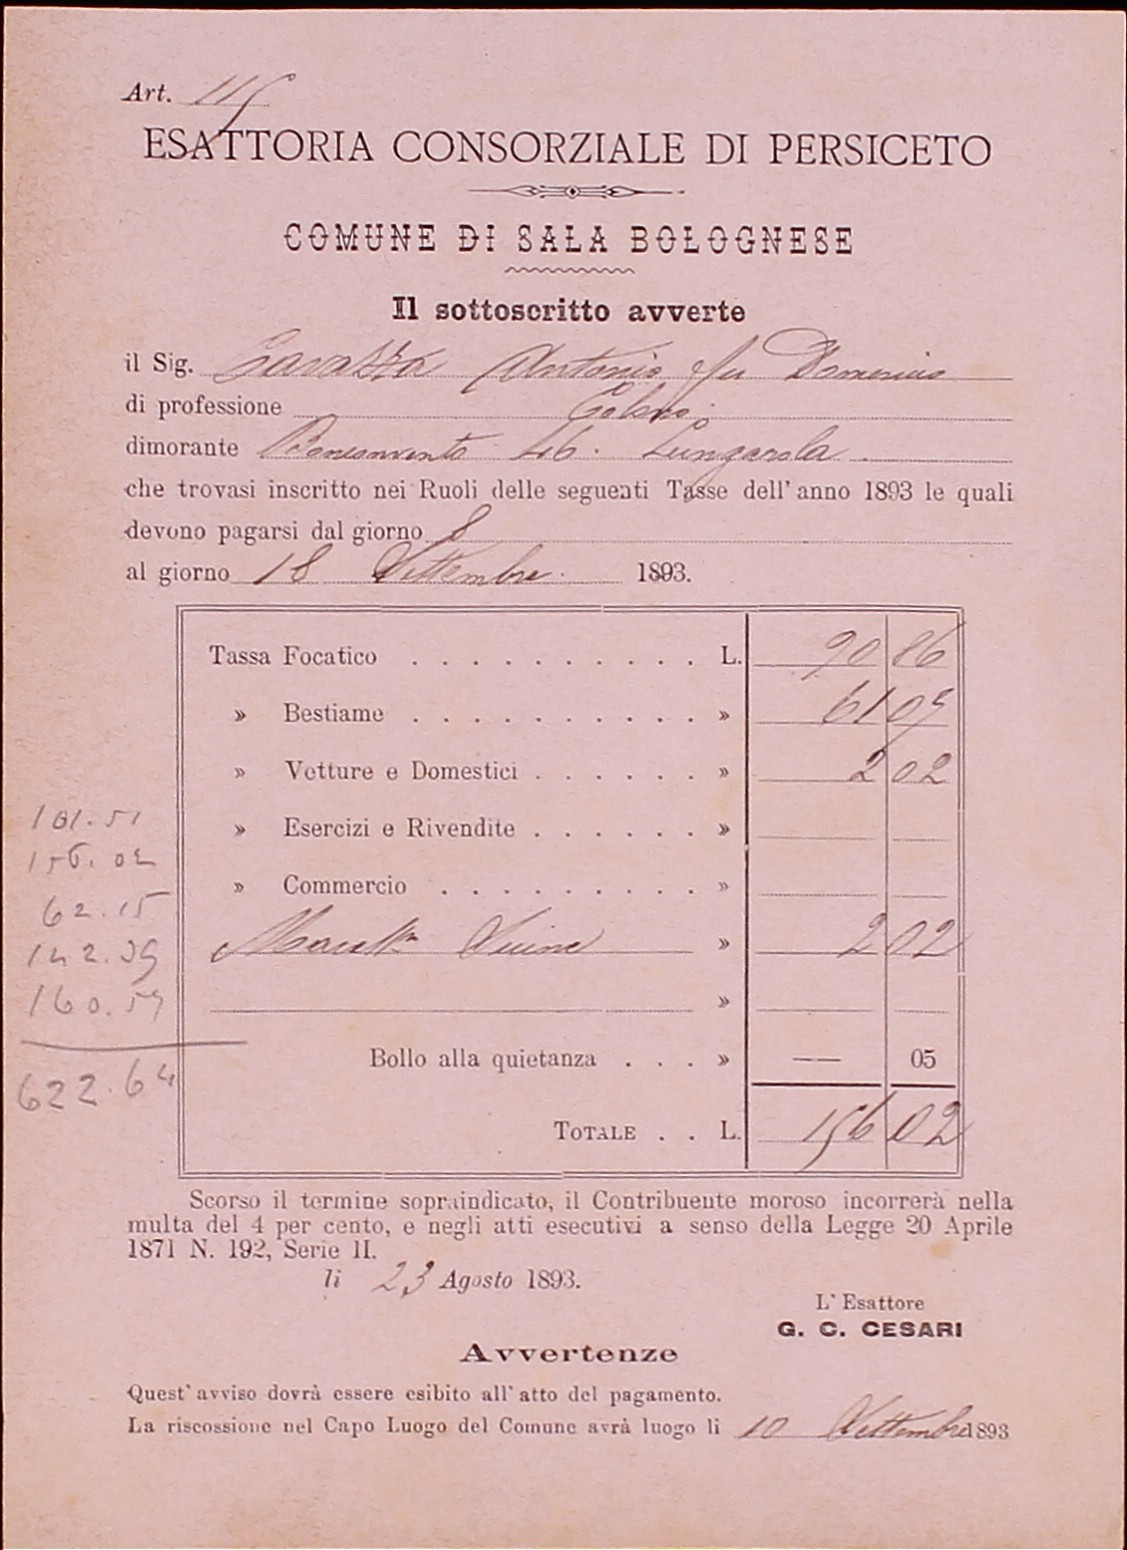 Art. 115
ESATTORIA CONSORZIALE DI PERSICETO
COMUNE DI SALA BOLOGNESE
Il sottoscritto avverte
il Sig. Cavazza Antonio fu Domenico
di professione Colono
dimorante Bonconvento 46. Lungarola
che trovasi inscritto nei Ruoli delle seguenti Tasse dell' anno 1893 le quali
devono pagarsi dal giorno 8
al giorno 18 Settembre 1893.
Tassa Focatico . . . . . . . . . . . L. 90 86
» Bestiame . . . . . . . . . . . » 61 05
» Vetture e Domestici . . . . . . » 2 02
» Esercizi e Rivendite . . . . . . »
» Commercio . . . . . . . . . »
Suine » 2 02
»
Bollo alla quietanza . . . » — 05
TOTALE . . L. 156 02
101.51
156.02
62.15
142.39
160.57
622.64
Scorso il termine sopraindicato, il Contribuente moroso incorrerà nella
multa del 4 per cento, e negli atti esecutivi a senso della Legge 20 Aprile
1871 N. 192, Serie II.
li 23 Agosto 1893.
L' Esattore
G. C. CESARI
Avvertenze
Quest' avviso dovrà essere esibito all' atto del pagamento.
La riscossione nel Capo Luogo del Comune avrà luogo li 10 Settembre 1893